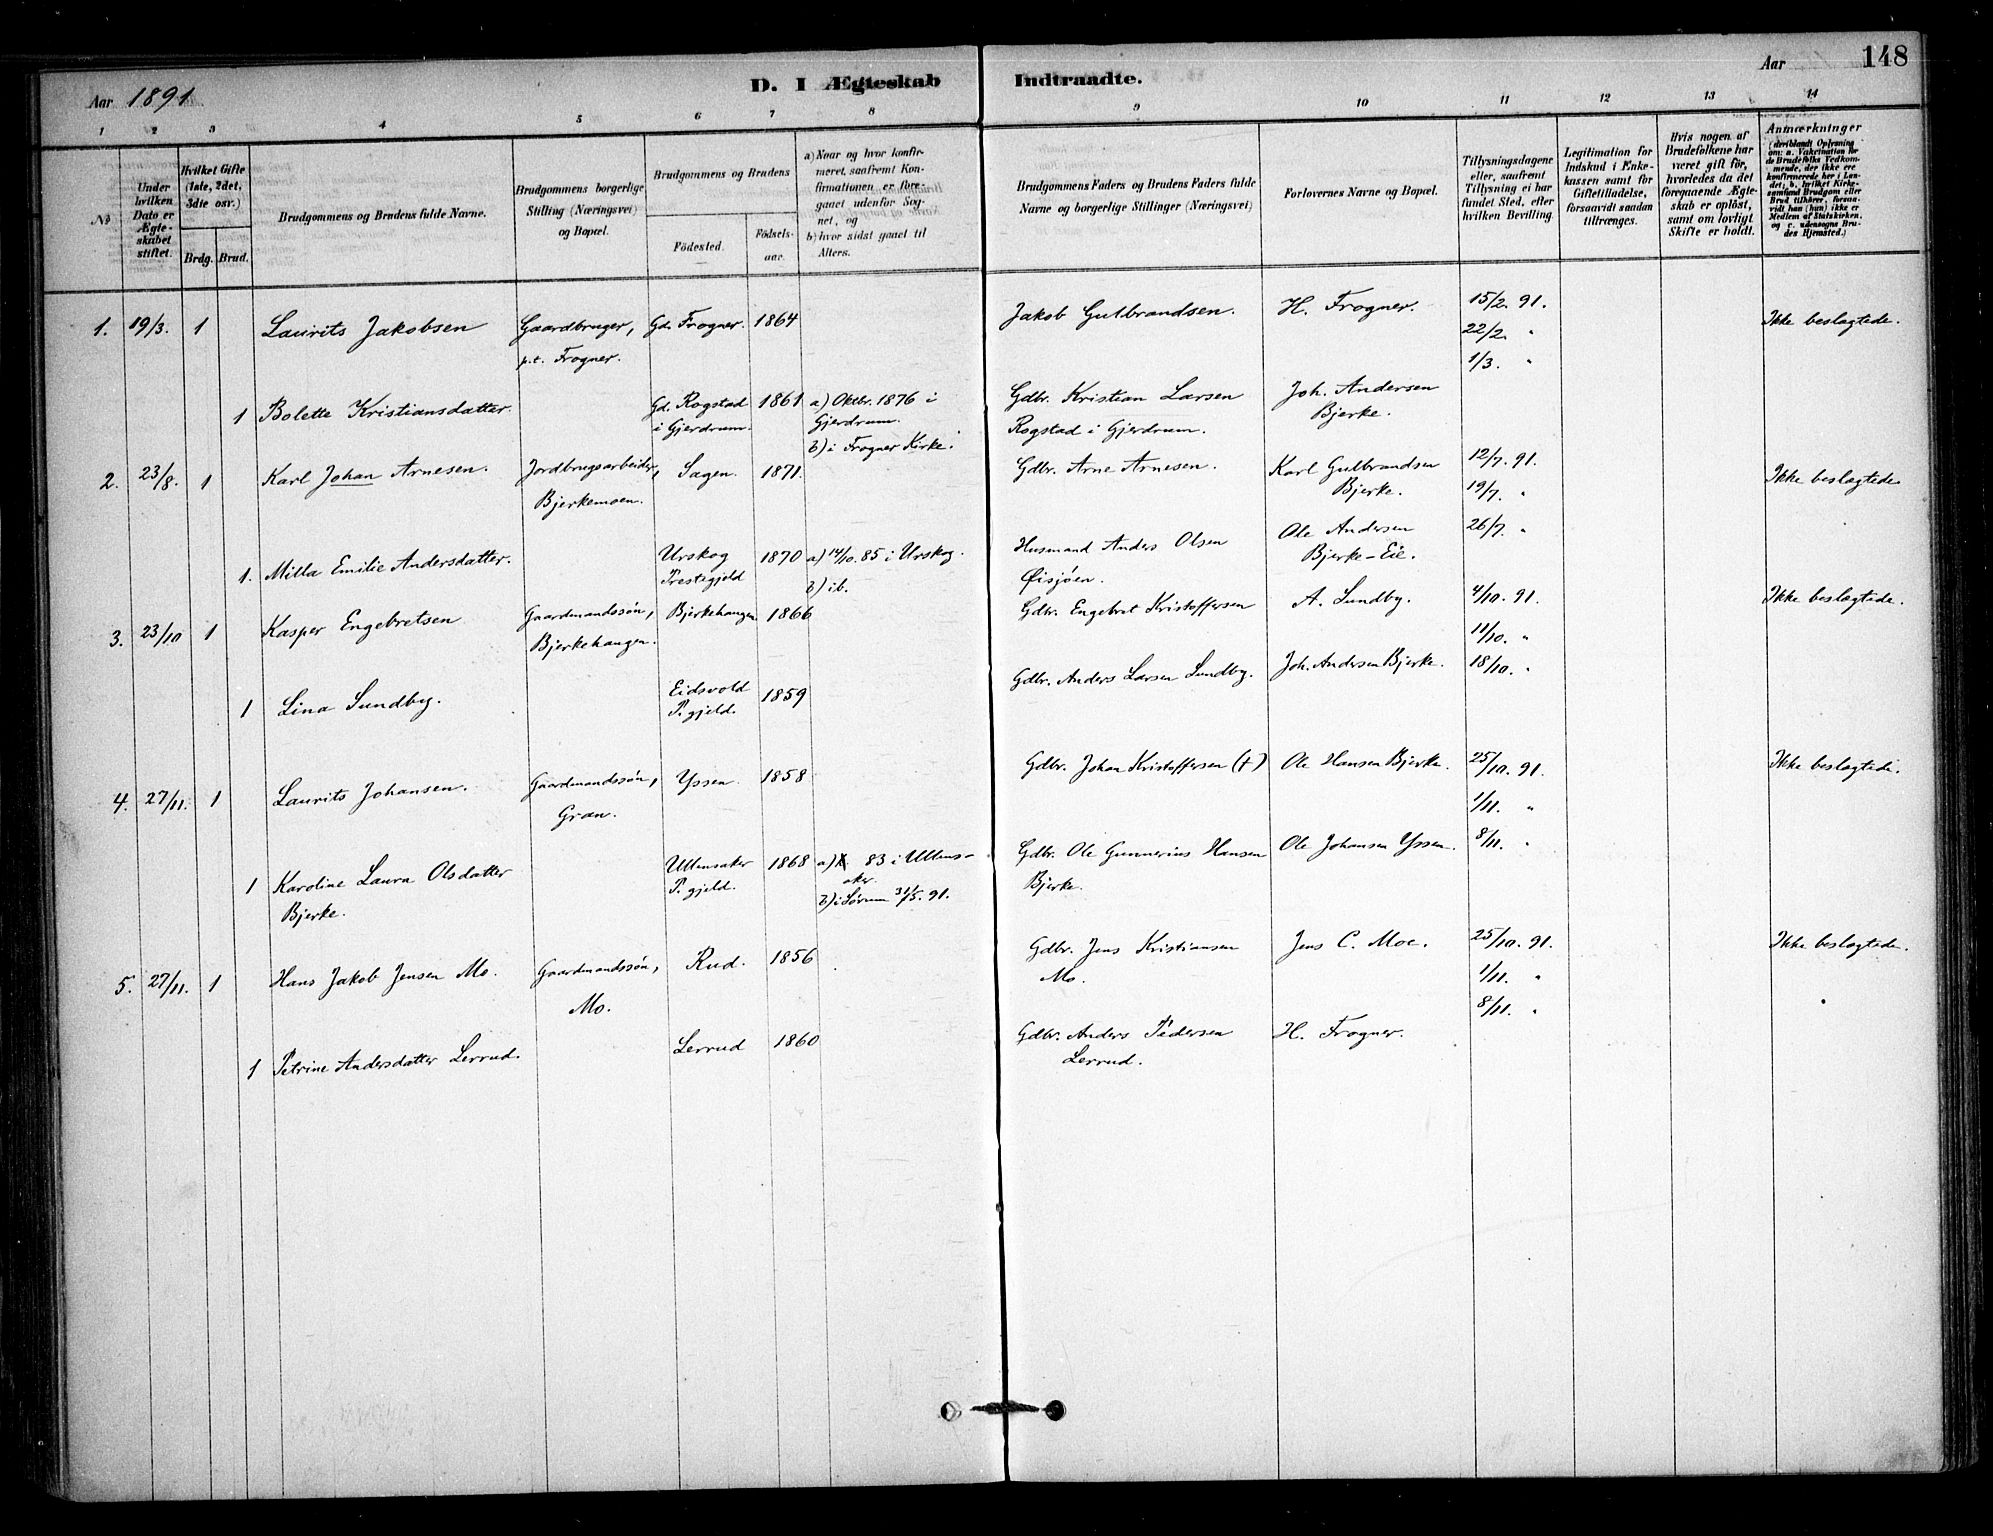 148
Aar 1891.
D. I Ægteskab Indtraadte.
Aar
1 2 3 4 5 6 7 8 9 10 11 12 13 14
No
Under hvilken Dato er Ægteskabet stiftet.
Hvilket Gifte (1ste, 2det, 3die osv.)
Brdg. Brud.
Brudgommens og Brudens fulde Navne.
Brudgommens borgerlige Stilling (Næringsvei) og Bopæl.
Brudgommens og Brudens
Födested.
Födsels-aar.
a) Naar og hvor konfirmeret, saafremt Konfirmationen er foregaaet udenfor Sognet, og
b) hvor sidst gaaet til Alters.
Brudgommens Faders og Brudens Faders fulde Navne og borgerlige Stillinger (Næringsvei)
Forlovernes Navne og Bopæl.
Tillysningsdagene eller, saafremt Tillysning ei har fundet Sted, efter hvilken Bevilling.
Legitimation for Indskud i Enkekassen samt for Giftetilladelse, forsaavidt saadan tiltrænges.
Hvis nogen af Brudefolkene har været gift før, hvorledes da det foregaaende Ægteskab er oplöst, samt om lovligt Skifte er holdt.
Anmærkninger (deriblandt Oplysning om: a. Vakcination for de Brudefolks Vedkommende, der ikke ere konfirmerede her i Landet; b. hvilket Kirkesamfund Brudgom eller Brud tilhører, forsaavidt han (hun) ikke er Medlem af Statskirken, og c. udensogns Brudes Hjemsted.)
1. 19/3. 1 Laurits Jakobsen Gaardbruger, Gd. Frogner. 1864 Jakob Gulbrandsen. H. Frogner. 15/2. 91. Ikke beslagtede.
p.t. Frogner. 22/2. "
1/3. "
1 Bolette Kristiansdatter. Gd. Rogstad 1861 a) Oktbr. 1876 i Gdbr. Kristian Larsen Joh. Andersen
i Gjerdrum. Gjerdrum. Rogstad i Gjerdrum. Bjerke.
b) i Frogner Kirke.
2. 23/8. 1 Karl Johan Arnesen. Jordbrugsarbeider, Sagen. 1871. Gdbr. Arne Arnesen. Karl Gulbrandsen 12/7. 91. Ikke beslagtede.
Bjerkemoen. Bjerke. 19/7. "
26/7. "
1. Milla Emilie Andersdatter. Urskog 1870 a) 14/10. 85 i Urskog. Husmand Anders Olsen Ole Andersen
Prestegjeld b) ib. Øisjøen. Bjerke-Eie.
3. 23/10 1 Kasper Engebretsen Gaardmandssøn, Bjerkehaugen 1866 Gdbr. Engebret Kristoffersen A. Sundby. 4/10. 91. Ikke beslagtede.
Bjerkehaugen. 11/10. "
1 Lina Sundby. Eidsvold 1859 Gdbr. Anders Larsen Sundby. Joh. Andersen Bjerke. 18/10. "
P.gjeld.
4. 27/11. 1 Laurits Johansen. Gaardmandssøn, Yssen. 1858 Gdbr. Johan Kristoffersen (†) Ole Hansen Bjerke. 25/10. 91. Ikke beslagtede.
Gran. 1/11. "
8/11. "
1 Karoline Laura Olsdatter Ullensaker 1868 a) 83 i Ullens- Gdbr. Ole Gunnerius Hansen Ole Johansen Yssen.
Bjerke. P.gjeld. aker. Bjerke.
b) i Sørum 31/5. 91.
5. 27/11. 1 Hans Jakob Jensen Mo. Gaardmandssøn, Rud. 1856 Gdbr. Jens Kristiansen Jens C. Moe. 25/10. 91. Ikke beslagtede.
Mo. Mo. 1/11. "
8/11. "
1 Petrine Andersdatter Lerrud. Lerrud 1860 Gdbr. Anders Pedersen H. Frogner.
Lerrud.